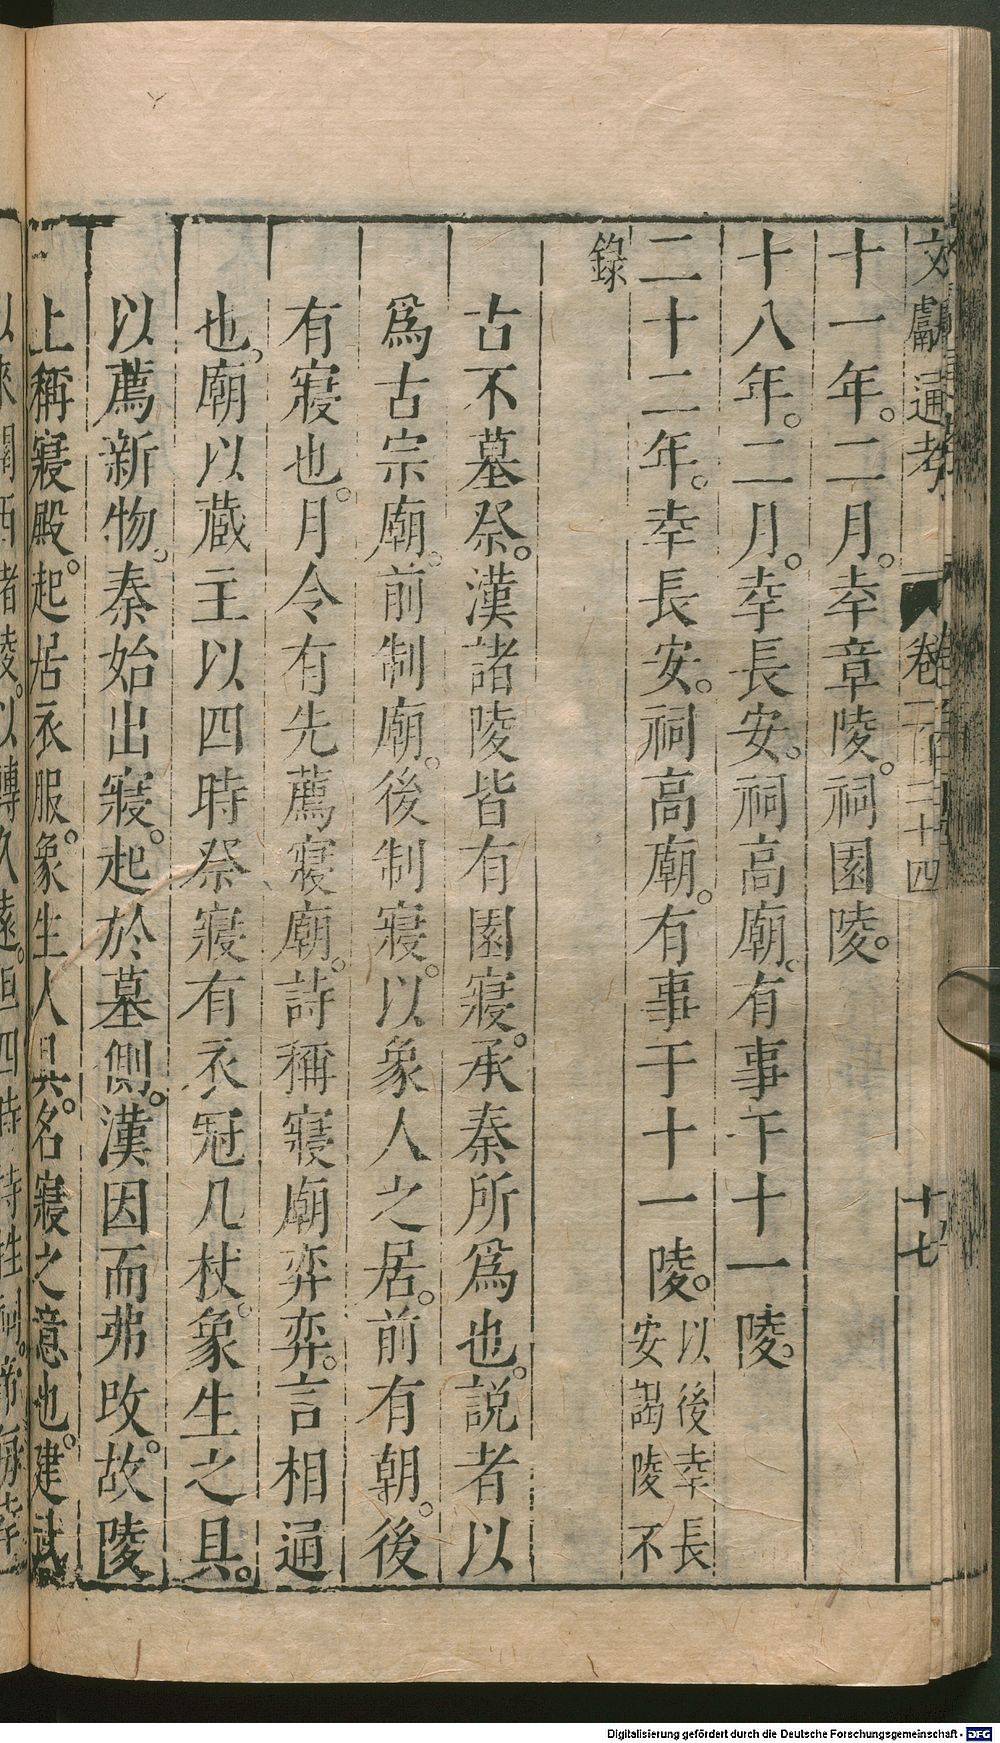 文獻通考 卷一百二十四 十七
十一年。二月。幸章陵。祠園陵。
十八年。二月。幸長安。祠高廟。有事于十一陵。
二十二年。幸長安。祠高廟。有事于十一陵。以後幸長安謁陵不
錄
古不墓祭。漢諸陵皆有園寢。承秦所爲也。説者以
爲古宗廟。前制廟。後制寢。以象人之居。前有朝。後
有寢也。月令有先薦寢廟。詩稱寢廟弈弈。言相通
也。廟以蔵主以四時祭寢有衣冠几杖。象生之具。
以薦新物。秦始出寢。起於墓側。漢因而弗改。故陵
上稱寢殿。起居衣服。象生人具。名寢之意也。建武
以來關西諸陵。以轉久遠。但四時特牲祠。
Digitalisierung gefördert durch die Deutsche Forschungsgemeinschaft - DFG